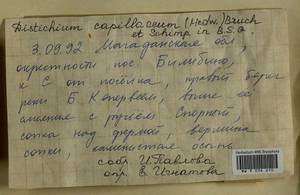 Distichium capillaceum (Hedw.) Bruch
et Schimp. in B.S.G.
3.09.92 Магаданская обл.,
окрестности пос. Билибино,
к С от посёлка, правый берег
реки Б. Кепервеем, выше её
слияния с ручьем Спорный,
сопка над фермой, вершина
сопки, каменистая осыпь
собр. И. Павлова
опр. Е. Игнатова